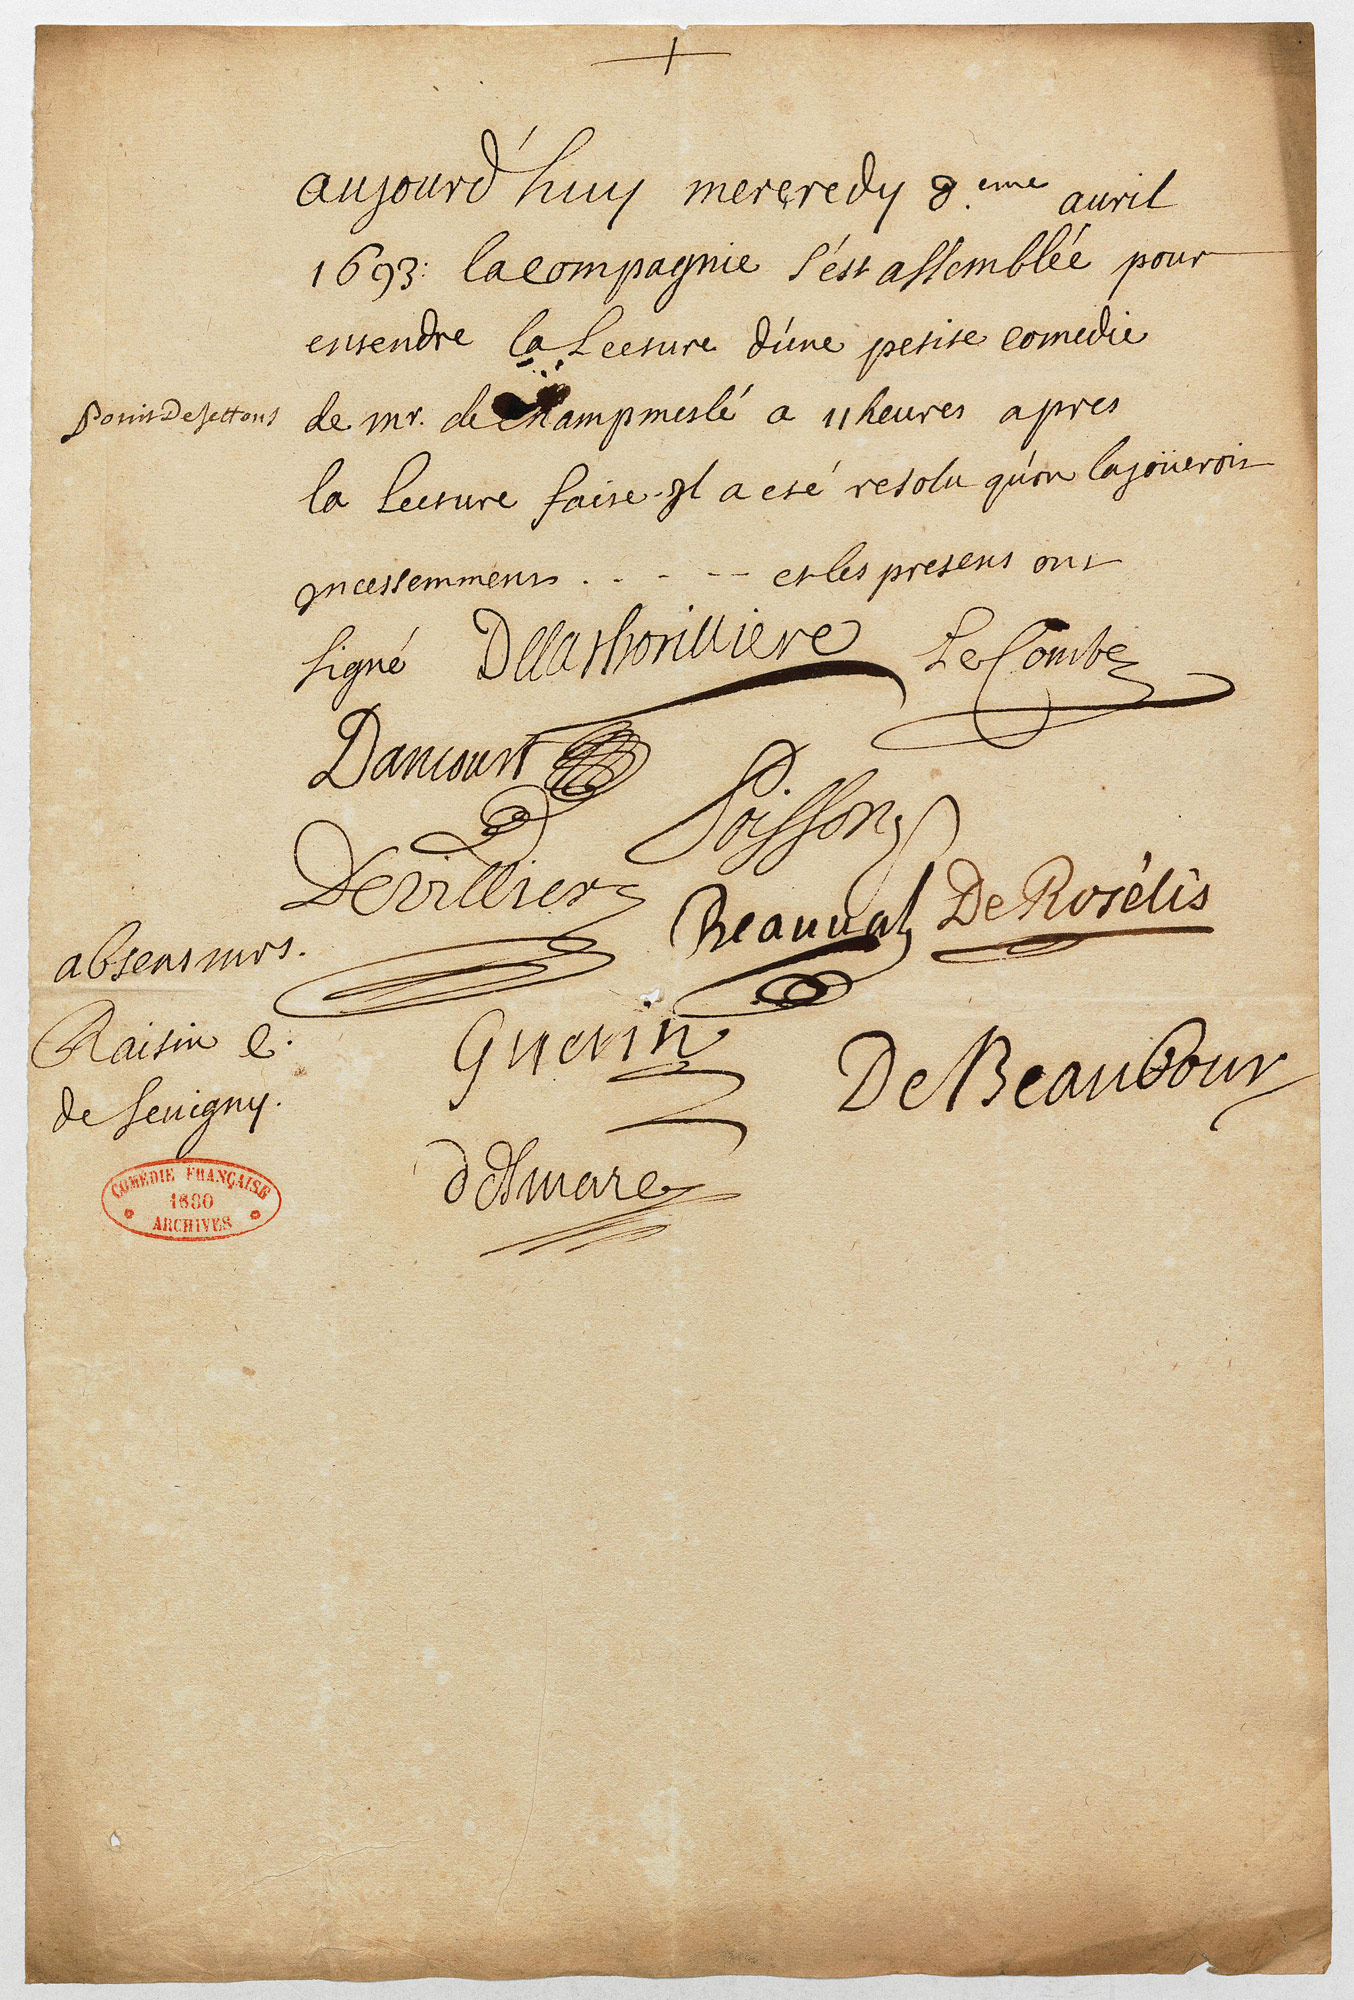 aujourd'huy mercredy 8.eme auril
1693: la compagnie s'est assemblée pour
entendre la Lecture d'une petite comedie
Point De Jettons
de mr. de champmeslé a 11 heures apres
la Lecture faite. Jl a eté resolu qu'on la joüeroit
Jncessemment . . . - -- et les presens ont
signé Delathorilliere Le Comte
Dancourt
Poisson
De villiers
Beauual De Rosélis
absens mrs.
Raisin l.
de Seuigny.
Guerin
De Beaubour
desmare
COMÉDIE FRANÇAISE
1680
ARCHIVES